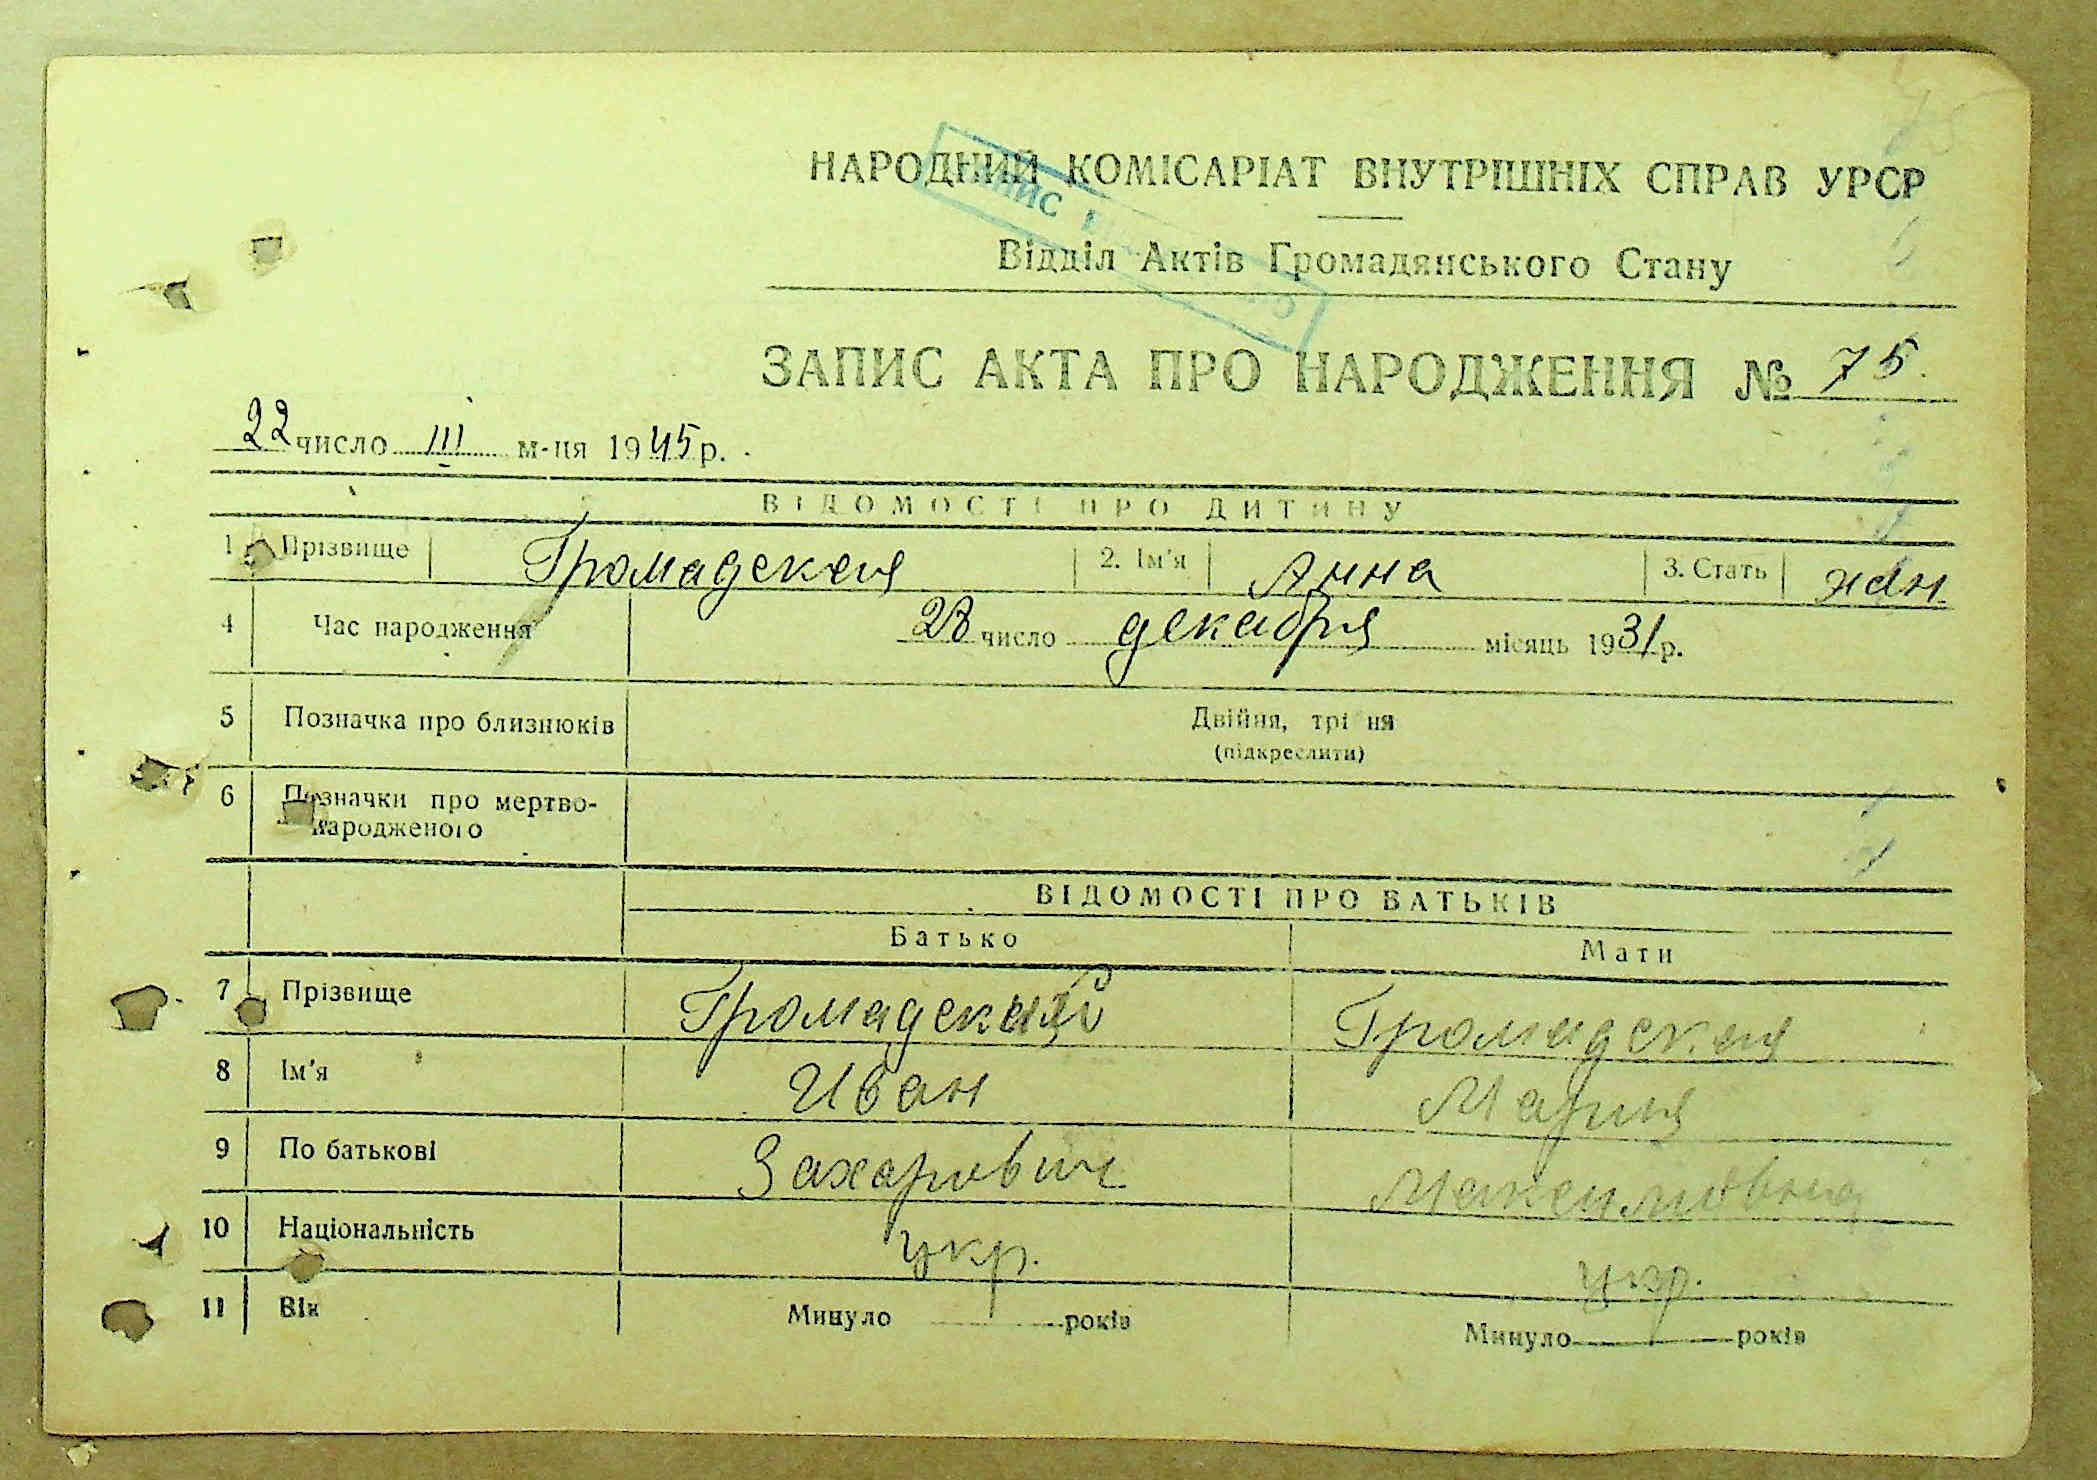 НАРОДНИЙ КОМІСАРІАТ ВНУТРІШНІХ СПРАВ УРСР
Відділ Актів Громадянського Стану
ЗАПИС АКТА ПРО НАРОДЖЕННЯ № 75
22 число III м-ця 1945 р.
ВІДОМОСТІ ПРО ДИТИНУ
1 Прізвище Громадская 2. Ім'я Анна 3. Стать жен
4 Час народження 28 число декабря місяць 1931 р.
5 Позначка про близнюків Двійня, трі ня
(підкреслити)
6 Позначки про мертво-
народженого
ВІДОМОСТІ ПРО БАТЬКІВ
Батько Мати
7 Прізвище Громадский Громадская
8 Ім'я Иван Мария
9 По батькові Захарович Максимовна
10 Національність укр. укр.
11 Вік Минуло років Минуло років